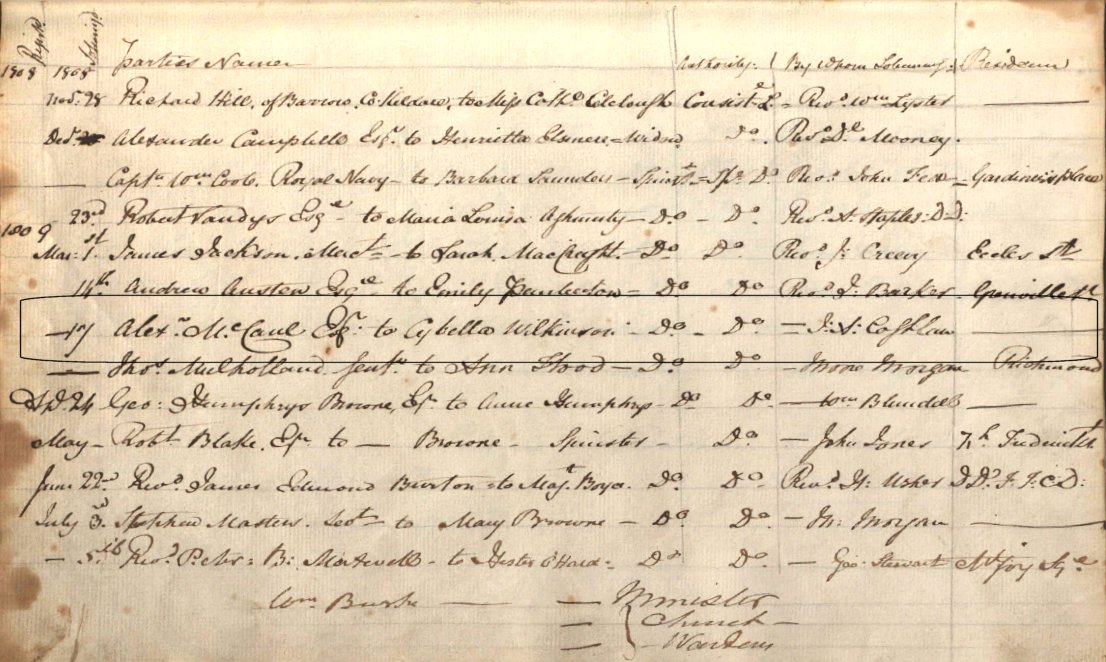 Regist.d Solemniz.d
1808 1808 Parties Names Authority. By Whom Solemniz.d Residence
Nov.r 28 Richard Hill, of Barrow, Co. Kildare, to Miss Cath.e Colclough Consist.l L.e Rev.d Wm Lyster
Dec.r Alexander Campbell Esq.r to Henrietta Widow D.o Rev.d D.r Mooney.
Capt.n Wm Cook. Royal Navy - to Barbara Saunders - Spinst.r = Sp.l D.o Rev.d John Fea - Gardiners place
23.d Robert Vandys Esq.re - to Maria Louisa - D.o - D.o Rev.d A. Staples D:D:
1809
Mar: 1.st James Jackson, Merc.t - to Sarah MacCreight. - D.o D.o Rev.d J: Creery Eccles St
14.th Andrew Austen Esq.re - to Emily = D.o D.o Rev.d J: Barker - Grenville St
- 17 Alex.r McCaul Esq.r to Cybella Wilkinson - D.o - D.o - J: A:
- Tho.s Mulholland, Gent.n to Ann Hood - D.o D.o - Moore Morgan Richmond
Ap. 24 Geo: Humphrys Browne, Esq.r to Anne Humphrys - D.o D.o - Wm Blundell
May - Rob.t Blake, Esq.r to - Browne - Spinster - D.o - John Jones N.h Frederick St
June 22.d Rev.d James Edmund Burton - to Marg.t Boyd. D.o D.o Rev.d H: Usher D D: F. T: C D:
July 3.d Stephen Masters. to Mary Browne - D.o D.o - M: Morgan
- 5.th Rev.d Peter: B: Maxwell - to Hester O'Hara - D.o D.o - Geo: Stewart Mt Joy Sq.e
Wm Burke - Minister
- Church -
- Wardens